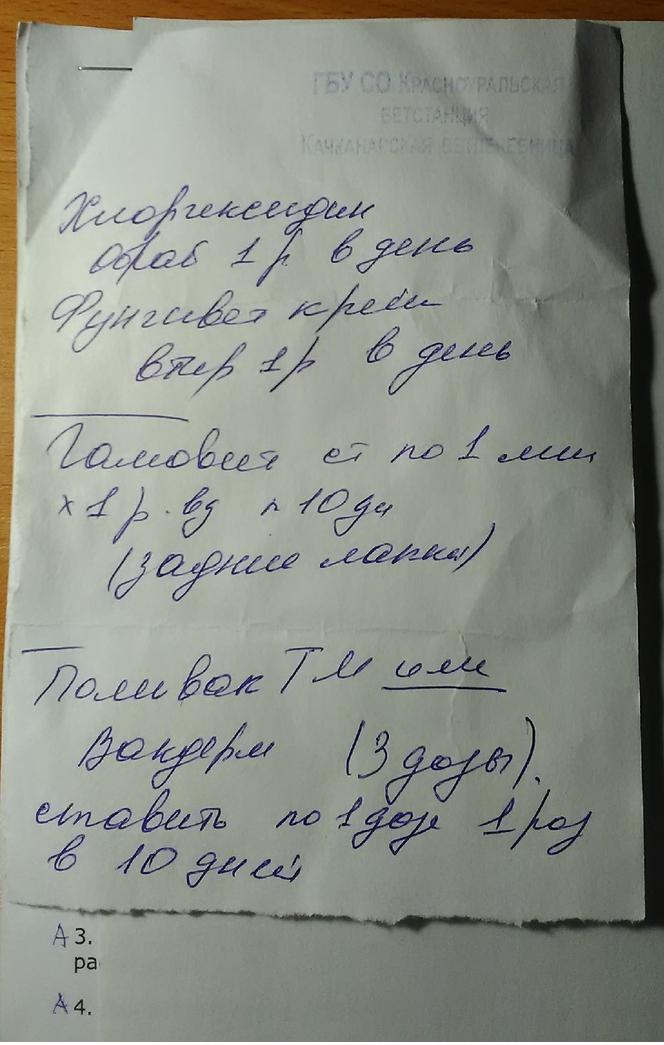 ГБУ СО Красноуральская
ветстанция
Качканарская ветлечебница
Хлоргексидин
обраб 1 р в день
Фунгивет крем
втир 1 р в день
Гамовит ст по 1 мл
х 1 р. вд n 10 дн
(задние лапки)
Поливак ТМ или
Вакдерм (3 дозы).
ставить по 1 дозе 1 раз
в 10 дней
А 3.
ра
А 4.